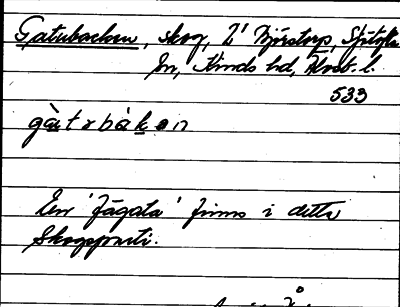 Gatubacken, skog, 2' Björstorp,
sn, Kinds hd, Älvsb. l.
533
gàtɘbàkɘn
En 'fägata' finns i detta
skogsparti.